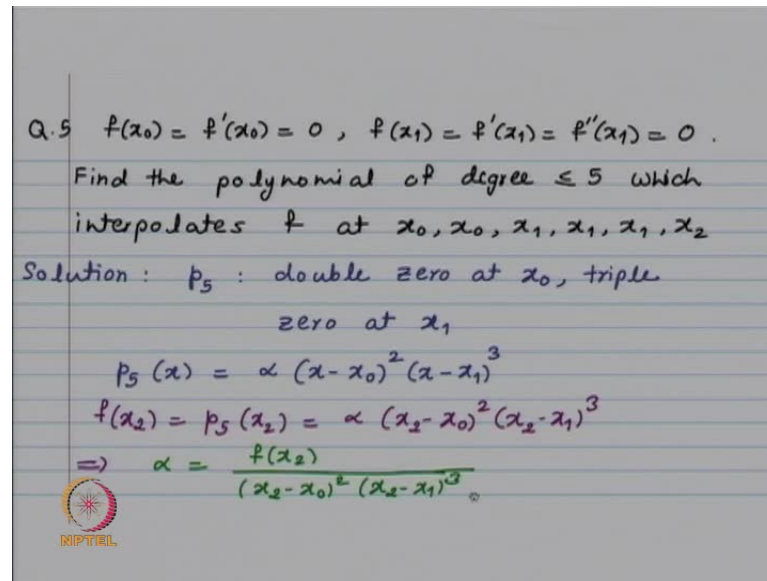 Q.5 f(x₀) = f'(x₀) = 0 , f(x₁) = f'(x₁) = f''(x₁) = 0 .
Find the polynomial of degree ≤ 5 which
interpolates f at x₀, x₀, x₁, x₁, x₁, x₂
Solution : p₅ : double zero at x₀, triple
zero at x₁
p₅ (x) = α (x-x₀)² (x-x₁)³
f(x₂) = p₅ (x₂) = α (x₂-x₀)² (x₂-x₁)³
⇒ α = f(x₂) / (x₂-x₀)² (x₂-x₁)³ .
NPTEL